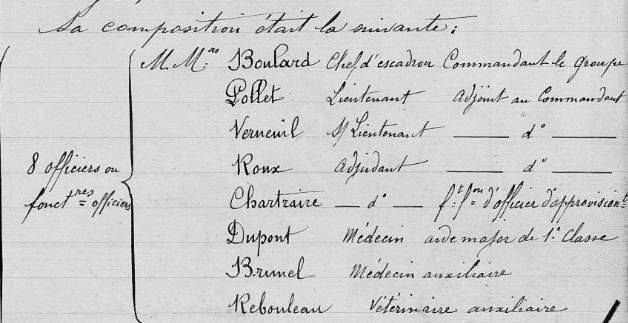 Sa composition était la suivante :
MM.rs Boulard Chef d'escadron Commandant le groupe
Pollet Lieutenant Adjoint au Commandant
Verneuil S/Lieutenant — d° —
8 officiers ou Roux Adjudant — d° —
fonct.res officiers Chartraire — d° — f.t f.on d'officier d'approvision.t
Dupont Médecin aide major de 1e Classe
Brunel Médecin auxiliaire
Rebouleau Vétérinaire auxiliaire